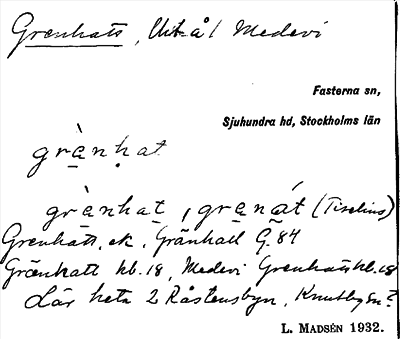 Grenhatts, Utb. å / Medevi
Fasterna sn,
Sjuhundra hd, Stockholms län
grànhat
grànhat, granát (Tiselius)
Grenhatt, ek, Gränhatt G. 84
Gränhatt hb. 18, Medevi Grenhatt hb. 68
Lär heta 2 Råstensbyn, Knutby sn?
L. MADSÉN 1932.